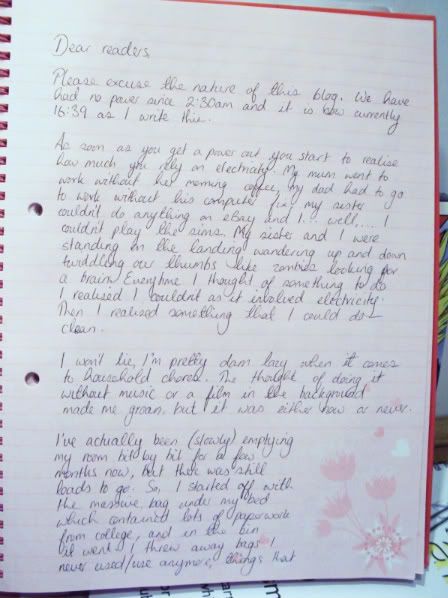 Dear readers,
Please excuse the nature of this blog. We have
had no power since 2:30am and it is now currently
16:39 as I write this.
As soon as you get a power out you start to realise
how much you rely on electricity. My mum went to
work without her morning coffee, my dad had to go
to work without his computer fix, my sister
couldn't do anything on eBay and I... well,... I
couldn't play the sims. My sister and I were
standing on the landing wandering up and down
twiddling our thumbs like zombies looking for
a brain. Everytime I thought of something to do
I realised I couldn't as it involved electricity.
Then I realised something that I could do -
clean.
I won't lie, I'm pretty dam lazy when it comes
to household chores. The thought of doing it
without music or a film in the background
made me groan. but it was either now or never.
I've actually been (slowly) emptying
my room bit by bit for a few
months now, but there was still
loads to go. So, I started off with
the massive bag under my bed
which contained lots of paperwork
from college, and in the bin
it went. I threw away bags I
never used/use anymore, things that